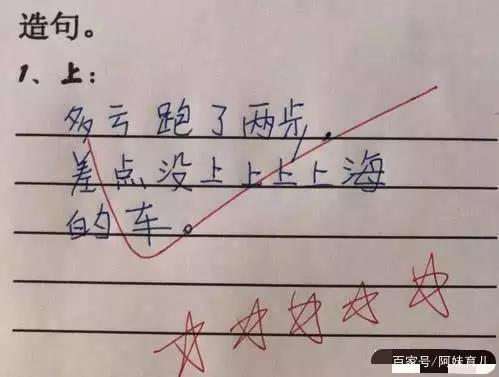 造句。
1、上：
多亏跑了两步，
差点没上上上上海
的车。
百家号/阿妹育儿